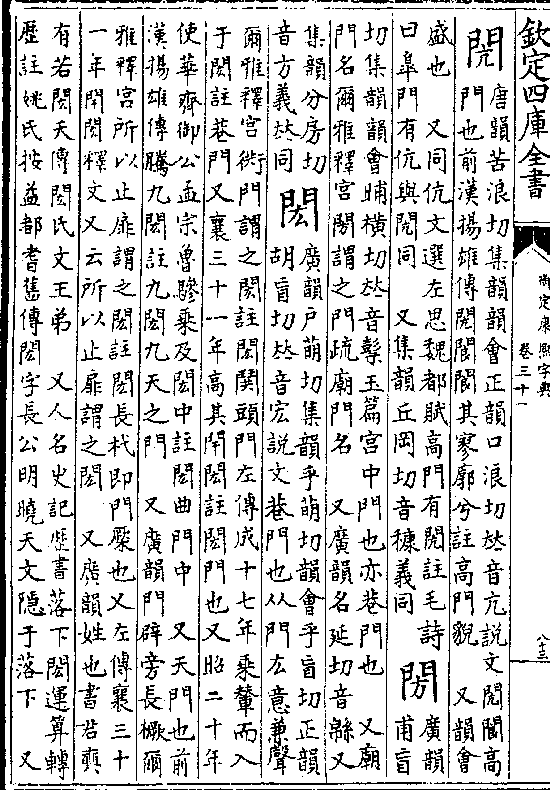 欽定四庫全書
御定康熙字典
卷三十一
八十三
閌
唐韻苦浪切集韻韻會正韻口浪切𠀤音亢説文閌閬高
門也前漢揚雄傳閌閬閬其寥廓兮註高門貌　又韻會
盛也　又同伉文選左思魏都賦高門有閌註毛詩
曰臯門有伉與閌同　又集韻丘岡切音穅義同
閍
廣韻
甫盲
切集韻韻會晡橫切𠀤音玉篇宮中門也亦巷門也　又廟
門名爾雅釋宮閍謂之門疏廟門名　又廣韻名延切音緜又
集韻分房切
音方義𠀤同
閎
廣韻戸萌切集韻乎萌切韻會乎盲切正韻
胡盲切𠀤音宏説文巷門也从門厷意兼聲
爾雅釋宮衖門謂之閎註閎閈頭門左傳成十七年乘輦而入
于閎註巷門又襄三十一年高其閈閎註閎門也又昭二十年
使華齊御公孟宗魯驂乘及閎中註閎曲門中　又天門也前
漢揚雄傳騰九閎註九閎九天之門　又廣韻門辟旁長橛爾
雅釋宮所以止扉謂之閎註閎長杙即門橜也又左傳襄三十
一年閈閎釋文又云所以止扉謂之閎　又廣韻姓也書君奭
有若閎夭傳閎氏文王弟　又人名史記歷書落下閎運算轉
歷註姚氏按益都耆舊傳閎字長公明曉天文隱于落下　又